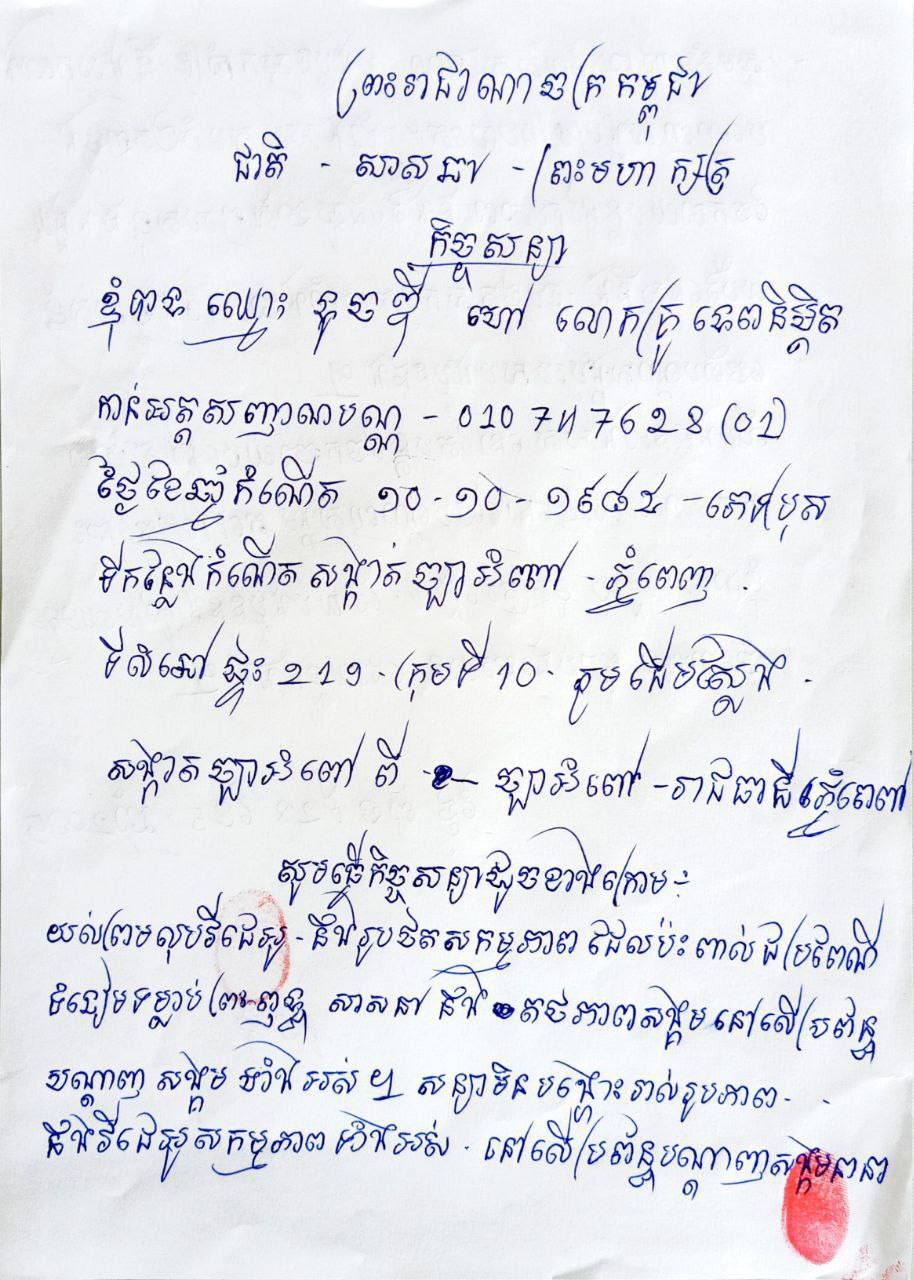 ព្រះរាជាណាចក្រកម្ពុជា
ជាតិ - សាសនា - ព្រះមហាក្សត្រ
កិច្ចសន្យា
ខ្ញុំបាទ ឈ្មោះ ទូច ហៅ លោកគ្រូទេពនិម្មិត
កាន់អត្តសញ្ញាណបណ្ណ - 010747628(01)
ថ្ងៃខែឆ្នាំកំណើត ១០-១០-១៩៨៥ - ភេទប្រុស
ទីកន្លែងកំណើត សង្កាត់ ច្បារអំពៅ - ភ្នំពេញ .
ទីលំនៅ ផ្ទះ 219 - ក្រុមទី 10 - ភូមិដើមស្លែង .
សង្កាត ច្បារអំពៅ ពី - ច្បារអំពៅ - រាជធានីភ្នំពេញ
សូមធ្វើកិច្ចសន្យាដូចខាងក្រោម ៖
យល់ព្រមលុបវីដេអូ - និងរូបថតសកម្មភាព ដែលប៉ះពាល់ដល់ប្រពៃណី
ទំនៀមទម្លាប់ ព្រះពុទ្ធ សាសនា និង សង្គម នៅលើប្រព័ន្ធ
បណ្តាញ សង្គម ទាំងអស់ ។ សន្យាមិនបង្ហោះរាល់រូបភាព - -
និងវីដេអូសកម្មភាពទាំងអស់ . នៅលើប្រព័ន្ធបណ្តាញសង្គមនានា